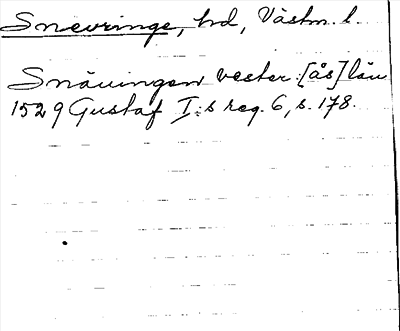 Snevringe, hd, Västm. l.
Snäuingen vester [ås] län
1529 Gustaf I:s reg. 6, s. 178.